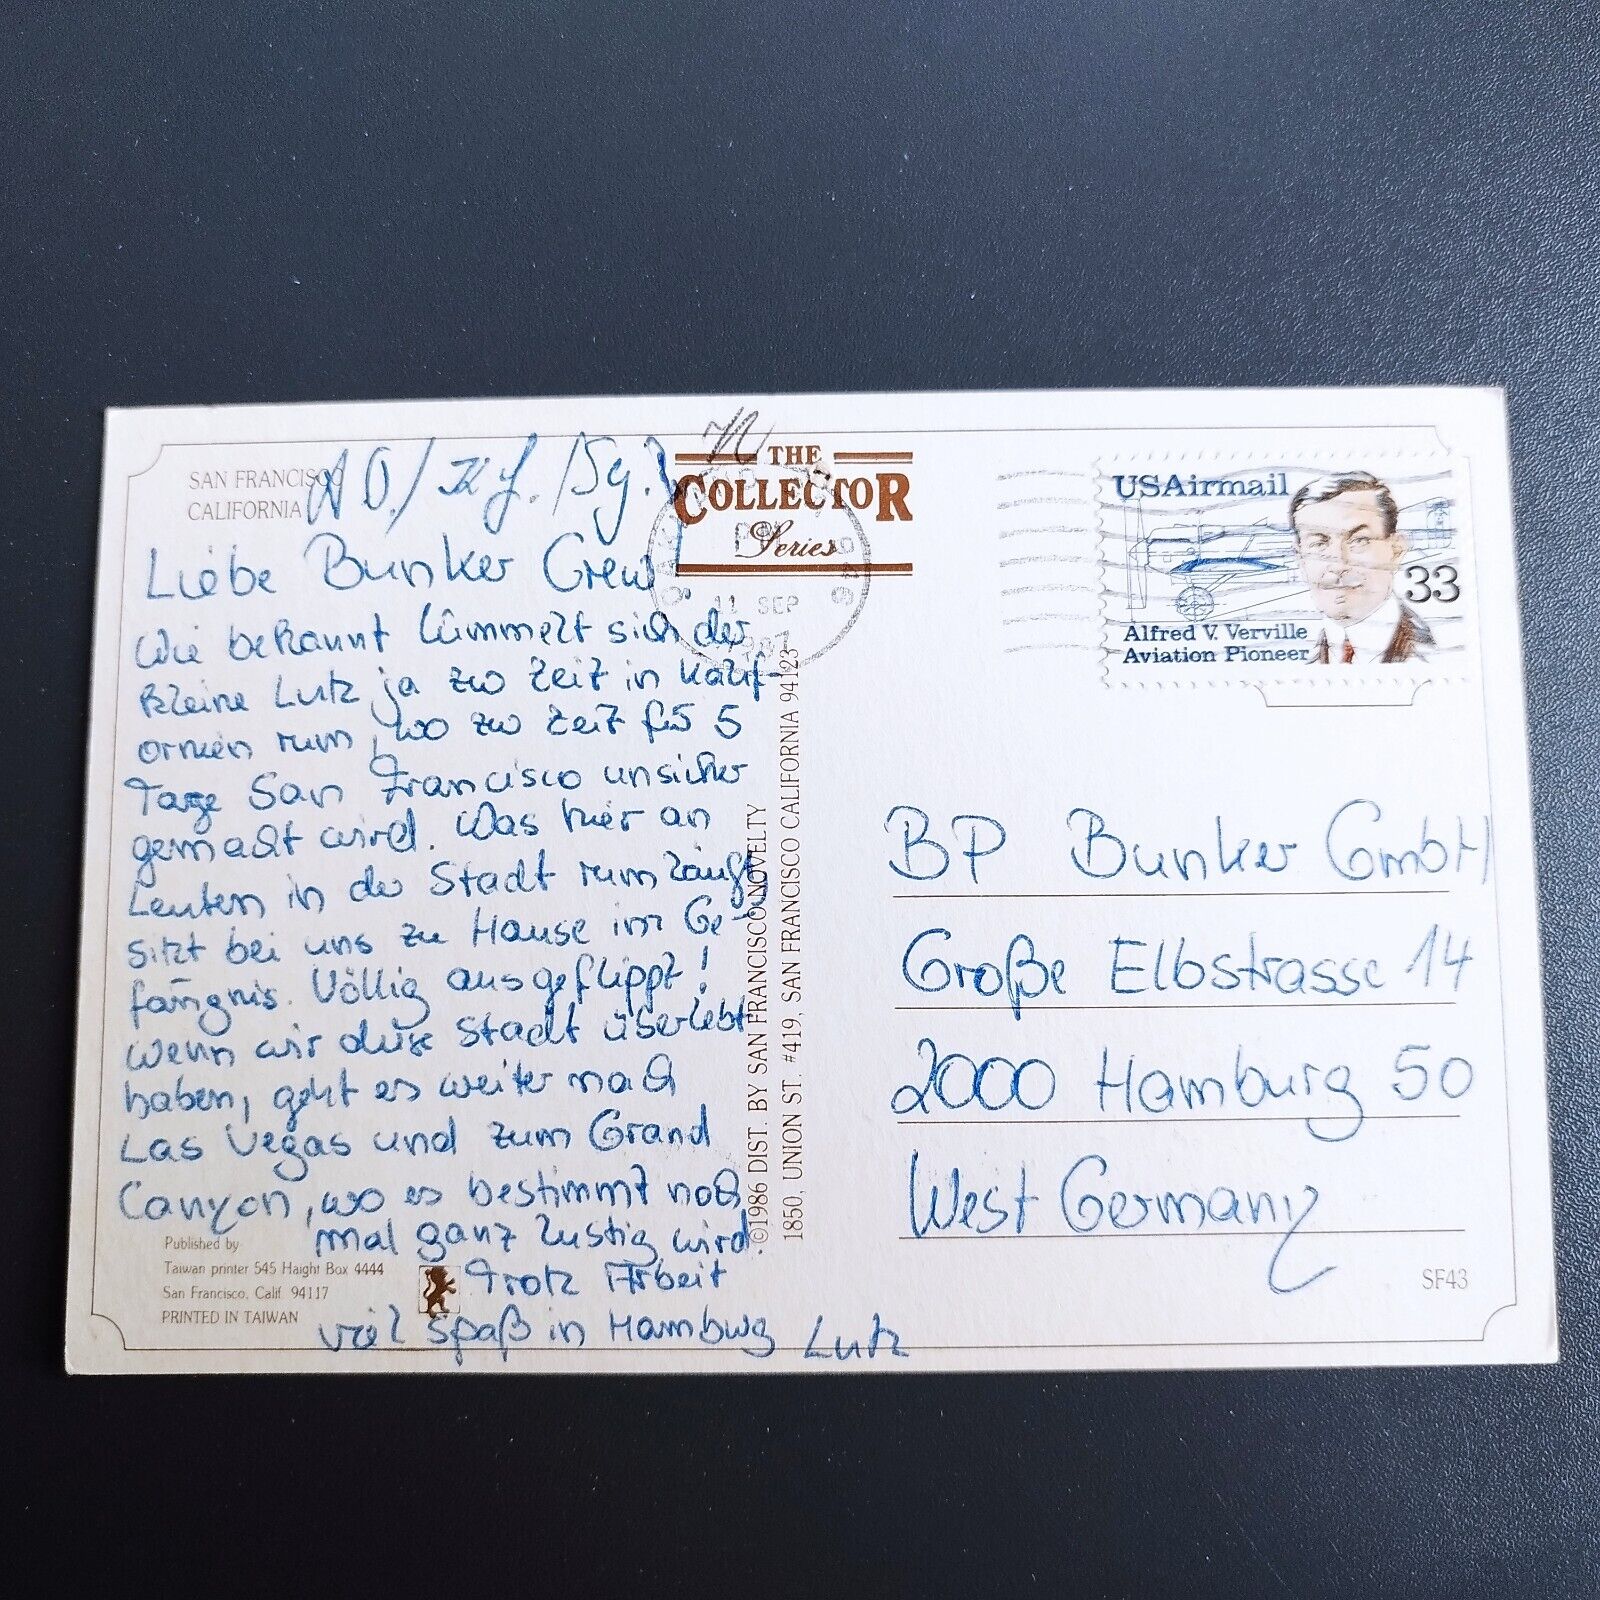 SAN FRANCISCO
CALIFORNIA
THE
COLLECTOR
Series
PM
11 SEP
1987
USAirmail
33
Alfred V. Verville
Aviation Pioneer
Liebe Bunker Crew
Wie bekannt lümmelt sich der
kleine Lutz ja zur Zeit in Kalif-
ornien rum, wo zur Zeit für 5
Tage San Francisco unsicher
gemacht wird. Was hier an
Leuten in der Stadt rumläuft
sitzt bei uns zu Hause im Ge-
fängnis. Völlig ausgeflippt!
Wenn wir diese Stadt überlebt
haben, geht es weiter nach
Las Vegas und zum Grand
Canyon, wo es bestimmt noch
mal ganz lustig wird.
Trotz Arbeit
viel Spaß in Hamburg Lutz
Published by
Taiwan printer 545 Haight Box 4444
San Francisco, Calif. 94117
PRINTED IN TAIWAN
©1986 DIST. BY SAN FRANCISCO NOVELTY
1850, UNION ST. #419, SAN FRANCISCO CALIFORNIA 94123
BP Bunker GmbH
Große Elbstrasse 14
2000 Hamburg 50
West Germany
SF43